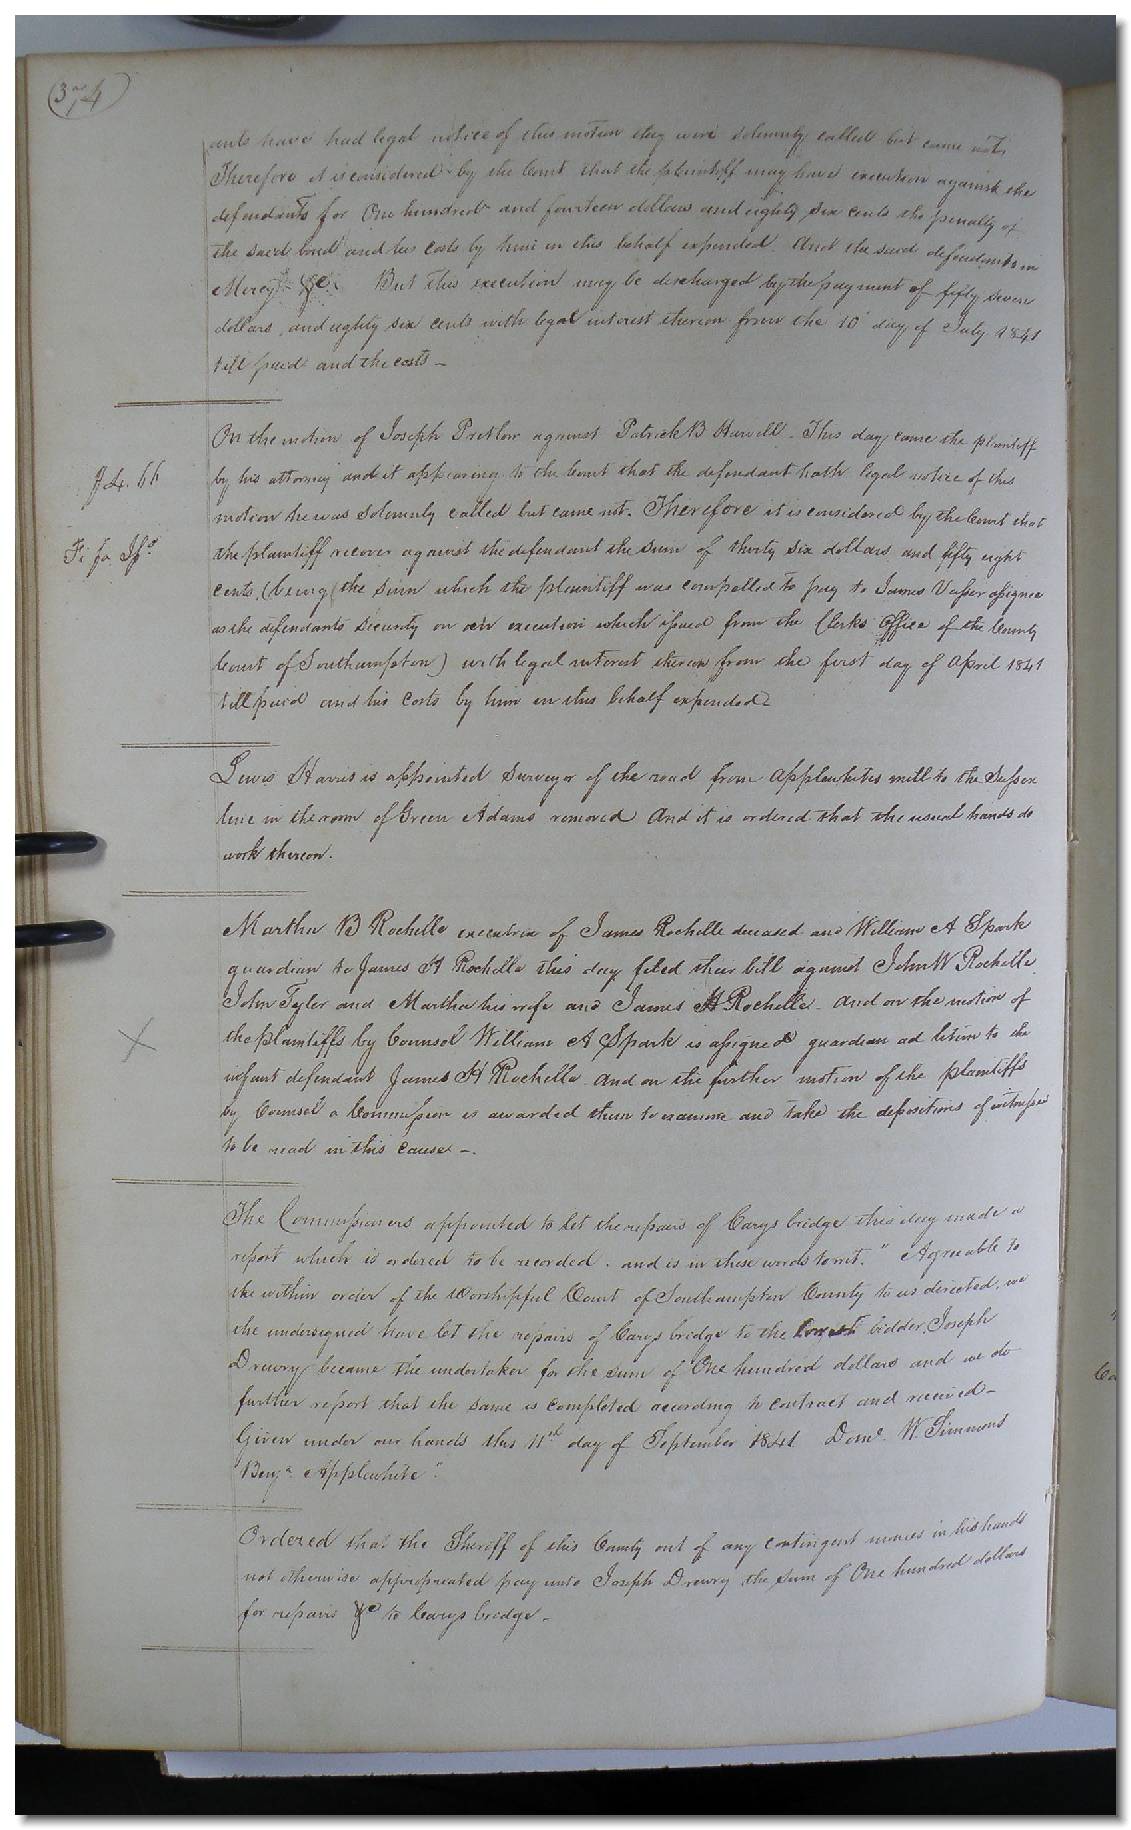 (374)
ants have had legal notice of this motion they were solemnly called but came not,
Therefore it is considered by the Court that the plaintiff may have execution against the
defendants for One hundred and fourteen dollars and eighty six cents the penalty of
the said bond and his costs by him in this behalf expended And the said defendants in
Mercy &c. But this execution may be discharged by the payment of fifty seven
dollars and eighty six cents with legal interest thereon from the 10 day of July 1841
till paid and the costs –
On the motion of Joseph Pretlow against Patrick B Harvell. This day came the plaintiff
by his attorney and it appearing to the Court that the defendant hath legal notice of this
motion he was solemnly called but came not. Therefore it is considered by the Court that
Fi fa
the plaintiff recover against the defendant the sum of thirty six dollars and fifty eight
cents, (being the sum which the plaintiff was compelled to pay to James Vasser assignee
as the defendants security on an execution which issued from the Clerks Office of the County
Court of Southampton) with legal interest thereon from the first day of April 1841
till paid and his costs by him in this behalf expended
Lewis Harris is appointed Surveyor of the road from Applewhites mill to the Sussex
line in the room of Green Adams removed And it is ordered that the usual hands do
work thereon.
Martha B Rochelle executrix of James Rochelle deceased and William A Spark
guardian to James H Rochelle this day filed their bill against John W Rochelle
John Tyler and Martha his wife and James H Rochelle. And on the motion of
the plaintiffs by Counsel William A Spark is assigned guardian ad litem to the
infant defendant James H Rochelle and on the further motion of the plaintiffs
by Counsel a Commission is awarded them to examine and take the depositions of witnesses
to be read in this cause –.
The Commissioners appointed to let the repairs of Carys bridge this day made a
report which is ordered to be recorded. and is in these words towit. " Agreeable to
the within order of the Worshipful Court of Southampton County to us directed, we
the undersigned have let the repairs of Carys bridge to the lowest bidder, Joseph
Drewry became the undertaker for the sum of One hundred dollars and we do
further report that the same is completed according to contract and received –
Given under our hands this 11th day of September 1841 W. Simmons
Benja. Applewhite".
Ordered that the Sheriff of this County out of any contingent monies in his hands
not otherwise appropreated pay unto Joseph Drewry the sum of One hundred dollars
for repairs &c to Carys bridge –